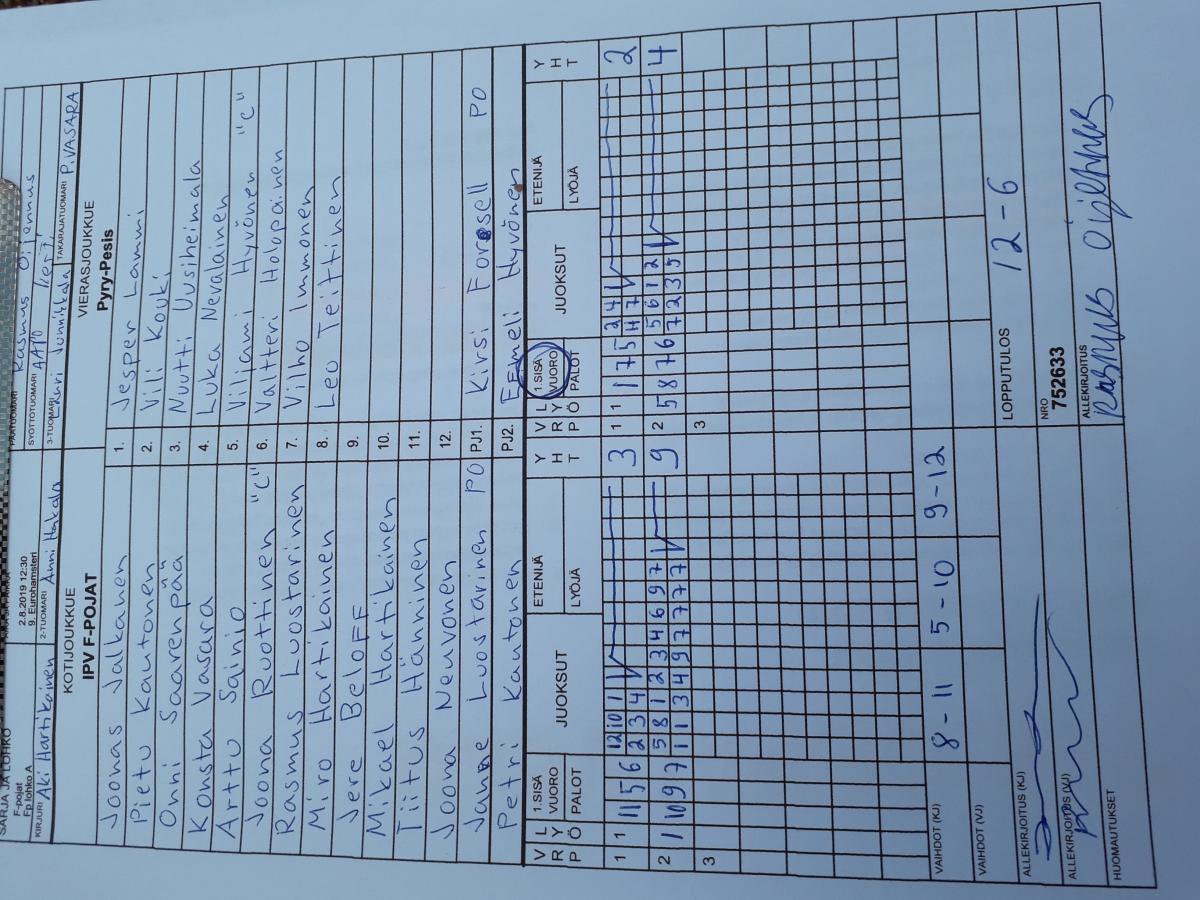 SARJA JA LOHKO
F-pojat
Fp lohko A
2.8.2019 12:30
9. Eurohamsteri
PÄÄTUOMARI Rasmus Oijennus
SYÖTTÖTUOMARI
KIRJURI Aki Hartikainen
2-TUOMARI Anni Hakala
3-TUOMARI Lauri Junnikkala
TAKARAJATUOMARI P.VASARA
KOTIJOUKKUE
IPV F-POJAT
VIERASJOUKKUE
Pyry-Pesis
Joonas Jalkanen 1. Jesper Lammi
Pietu Kautonen 2. Vili Kouki
Onni Saarenpää 3. Nuutti Uusiheimala
Konsta Vasara 4. Luka Nevalainen
Arttu Sainio 5. Viljami Hyvönen "C"
Joona Ruottinen "C" 6. Valtteri Holopainen
Rasmus Luostarinen 7. Vilho Immonen
Miro Hartikainen 8. Leo Teittinen
Jere Beloff 9.
Mikael Hartikainen 10.
Tiitus Hänninen 11.
Joona Neuvonen 12.
Janne Luostarinen PO PJ1. Kirsi Forsell PO
Petri Kautonen PJ2. Eemeli Hyvönen
V R P L Y Ö 1.SISÄ VUORO PALOT JUOKSUT ETENIJÄ LYÖJÄ Y H T V R P L Y Ö 1.SISÄ VUORO PALOT JUOKSUT ETENIJÄ LYÖJÄ Y H T
1 1 11 5 6 12 10 1 3 1 1 1 7 5 2 4 1 2
2 3 4 11 7
2 1 10 9 7 5 8 1 2 3 4 6 9 7 9 2 5 8 7 6 5 6 1 2 4
1 1 3 4 9 7 7 7 7 7 2 3 5
3 3
VAIHDOT (KJ) 8-11 5-10 9-12
VAIHDOT (VJ)
LOPPUTULOS 12-6
ALLEKIRJOITUS (KJ)
NRO
752633
ALLEKIRJOITUS (VJ)
ALLEKIRJOITUS
HUOMAUTUKSET